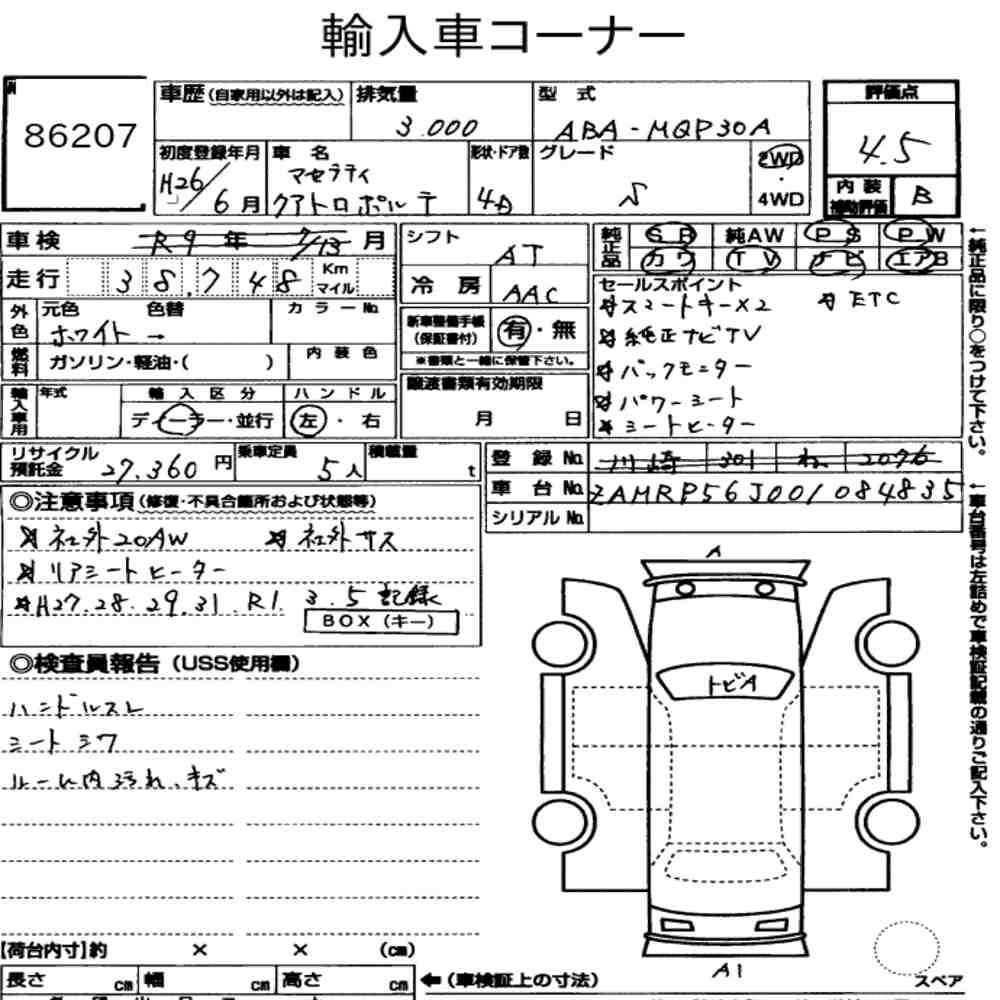 輸入車コーナー
86207
車歴(自家用以外は記入) 排気量 型式 評価点
3.000 ABA-MQP30A 4.5
初度登録年月 車名 形状・ドア数 グレード 2WD・4WD
H26/6月 マセラティ クアトロポルテ 4D S
内装補助評価 B
車検 R9年 7/13月
シフト AT
純正品 SR 純AW PS PW
カワ TV ナビ エアB
走行 38.748 Km マイル
冷房 AAC
セールスポイント
スマートキーX2 ETC
純正ナビTV
バックモニター
パワーシート
シートヒーター
外色 元色 色替 カラーNo.
ホワイト →
新車整備手帳(保証書付) 有・無
※書類と一緒に保管下さい。
燃料 ガソリン・軽油・( ) 内装色
譲渡書類有効期限
月 日
輸入車用 年式 輸入区分 ハンドル
ディーラー・並行 左・右
リサイクル預託金 27.360円 乗車定員 5人 積載量 t
登録No. 川崎 301 ね 2076
車台No. ZAMRP56J001084835
シリアルNo.
←純正品に限り○をつけて下さい。
←車台番号は左詰めで車検証記載の通りご記入下さい。
◎注意事項(修復・不具合箇所および状態等)
社外20AW 社外サス
リアシートヒーター
H27.28.29.31.R1.3.5記録
BOX(キー)
◎検査員報告(USS使用欄)
ハンドルスレ
シートシワ
ルーム内汚れ、キズ
A
トビA
A1
スペア
【荷台内寸】約 × × (cm)
長さ cm 幅 cm 高さ cm ←(車検証上の寸法)